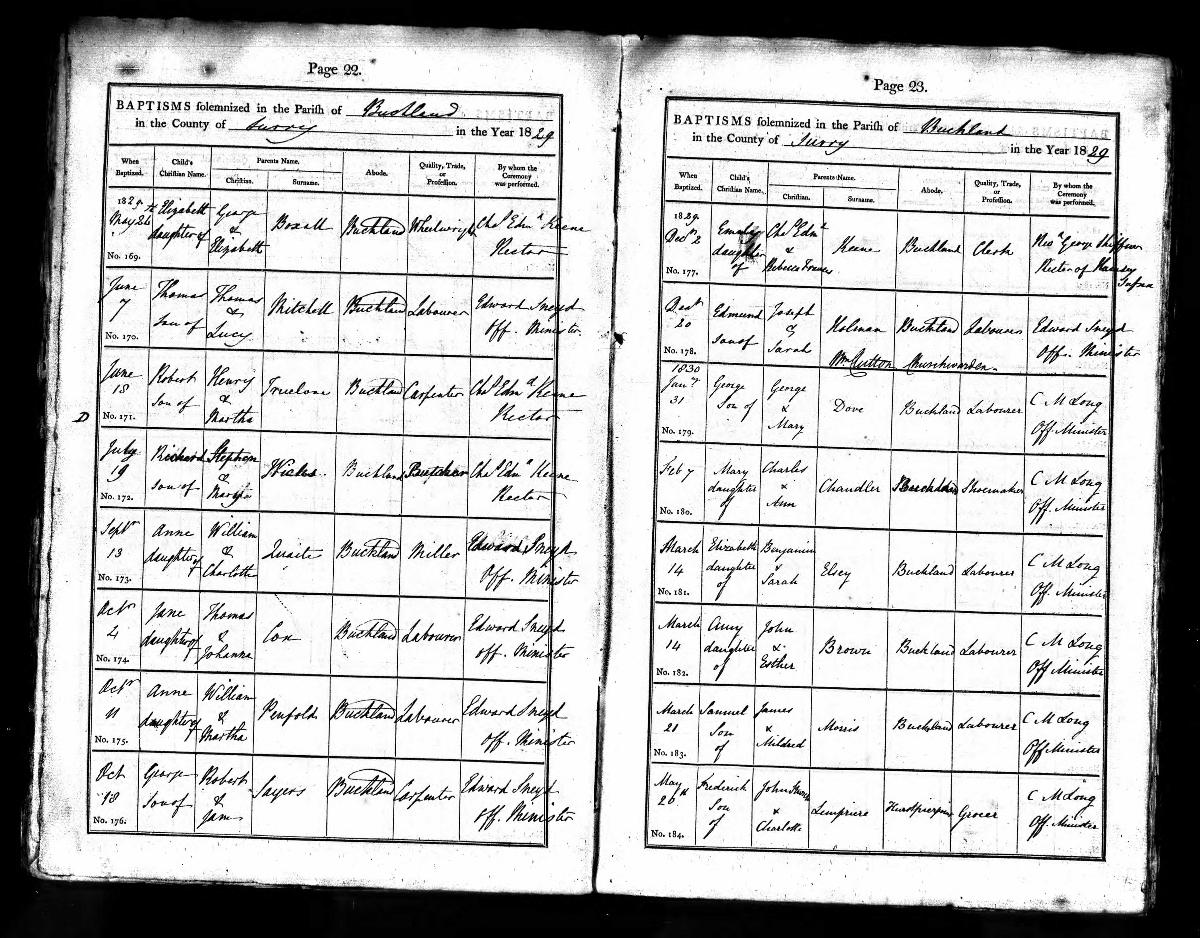 Page 22.
BAPTISMS solemnized in the Parish of Buckland
in the County of Surry in the Year 1829
When Baptized. Child's Christian Name. Parents Name. Abode. Quality, Trade, or Profession. By whom the Ceremony was performed.
Christian. Surname.
1829
May 24 Elizabeth daughter of George & Elizabeth Boxall Buckland Wheelwright Chas Edmd Keene Rector
No. 169.
June 7 Thomas Son of Thomas & Lucy Mitchell Buckland Labourer Edward Sneyd Off. Minister
No. 170.
June 18 Robert Son of Henry & Martha Truelove Buckland Carpenter Chas Edmd Keene Rector
No. 171.
D
July 19 Richard Son of Stephen & Wickes Buckland Butcher Chas Edmd Keene Rector
No. 172.
Septr 13 Anne daughter of William & Charlotte Quaite Buckland Miller Edward Sneyd Off. Minister
No. 173.
Octr 4 Jane daughter of Thomas & Johanna Cox Buckland Labourer Edward Sneyd off. Minister
No. 174.
Octr 11 Anne daughter of William & Martha Penfold Buckland Labourer Edward Sneyd off. Minister
No. 175.
Oct 18 George Son of Robert & Jane Sayers Buckland Carpenter Edward Sneyd off. Minister
No. 176.
Page 23.
BAPTISMS solemnized in the Parish of Buckland
in the County of Surry in the Year 1829
When Baptized. Child's Christian Name. Parents Name. Abode. Quality, Trade, or Profession. By whom the Ceremony was performed.
Christian. Surname.
1829.
Decr 2 daughter of Chas Edmd & Rebecca Frances Keene Buckland Clerk Revd George Rector of Hamsey
No. 177.
Decr 20 Edmund Son of Joseph & Sarah Holman Buckland Labourer Edward Sneyd Off. Minister
No. 178.
Wm Churchwarden.
1830
Jany 31 George Son of George & Mary Dove Buckland Labourer C M Long Off. Minister
No. 179.
Feb 7 Mary daughter of Charles & Ann Chandler Buckland Shoemaker C M Long Off. Minister
No. 180.
March 14 Elizabeth daughter of Benjamin & Sarah Elsey Buckland Labourer C M Long Off. Minister
No. 181.
March 14 Amy daughter of John & Esther Brown Buckland Labourer C M Long Off Minister
No. 182.
March 21 Samuel Son of James & Mildred Morris Buckland Labourer C M Long Off Minister
No. 183.
May 20 Frederick Son of John & Charlotte Lempriere Hurstpierpoint Grocer C M Long Off. Minister
No. 184.